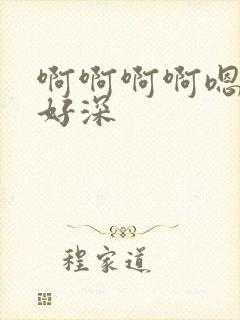 啊啊啊啊嗯
好深
程家道